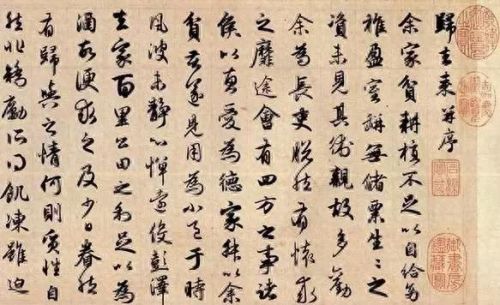 歸去來并序
余家貧耕植不足以自給幼
稚盈室缾無儲粟生生之
資未見其術親故多勸
余為長吏脫然有懷求
之靡途會有四方之事諸
侯以惠愛為德家叔以余
貧苦遂見用為小邑于時
風波未靜心憚遠役彭澤
去家百里公田之利足以為
酒故便求之及少日眷然
有歸與之情何則質性自
然非矯勵所得飢凍雖迫